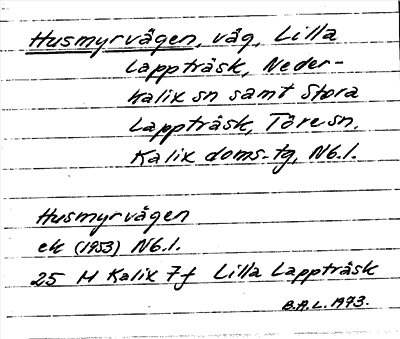 Husmyrvägen, väg, Lilla
Lappträsk, Neder-
kalix sn samt Stora
Lappträsk, Töre sn.
Kalix doms-tg, Nb.l.
Husmyrvägen
ek (1953) Nb.l.
25 M Kalix 7f Lilla Lappträsk
B.A.L. 1973.